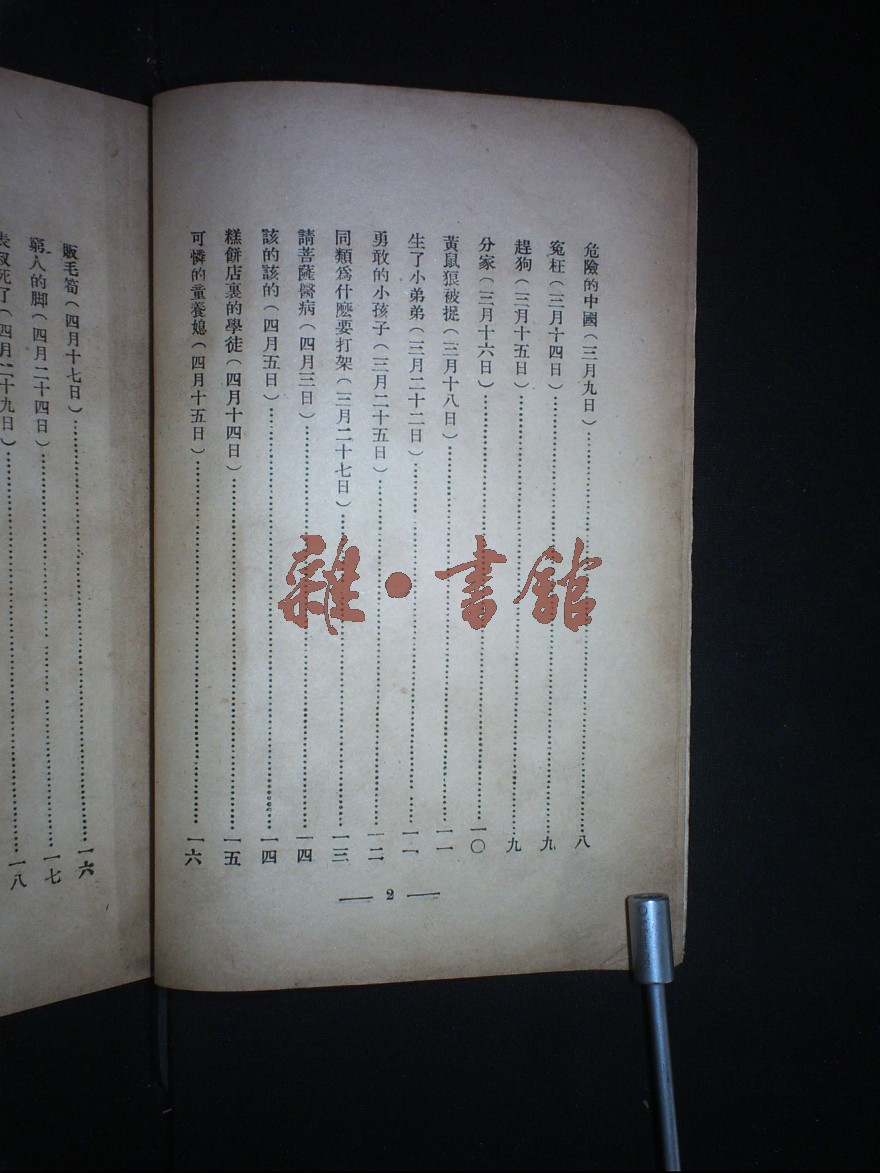 危險的中國(三月九日)………八
冤枉(三月十四日)………九
趕狗(三月十五日)………九
分家(三月十六日)………一〇
黃鼠狼被捉(三月十八日)………一一
生了小弟弟(三月二十二日)………一一
勇敢的小孩子(三月二十五日)………一二
同類爲什麽要打架(三月二十七日)………一三
請菩薩醫病(四月三日)………一四
該的該的(四月五日)………一四
糕餅店裏的學徒(四月十四日)………一五
可憐的童養媳(四月十五日)………一六
2
販毛筍(四月十七日)………一六
窮人的脚(四月二十四日)………一七
表叔死了(四月二十九日)………一八
雜·書館